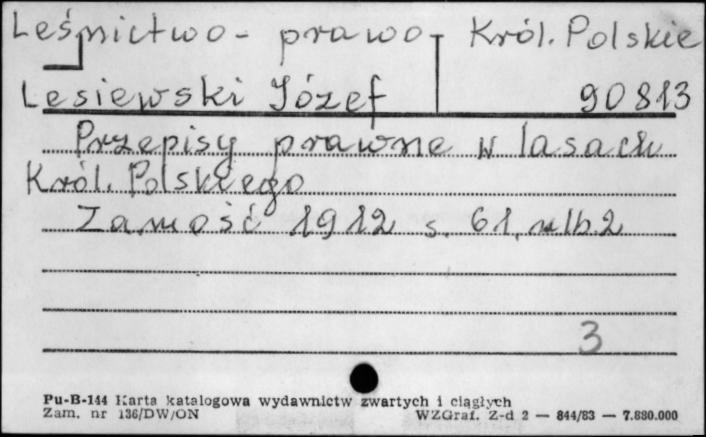 Leśnictwo - prawo - Król. Polskie
Lesiewski Józef 90813
Przepisy prawne w lasach
Król. Polskiego
Zamość 1912 s. 61, nlb. 2
3
Pu-B-144 Karta katalogowa wydawnictw zwartych i ciągłych
Zam. nr 136/DW/ON WZGraf. Z-d 2 — 844/83 — 7.880.000